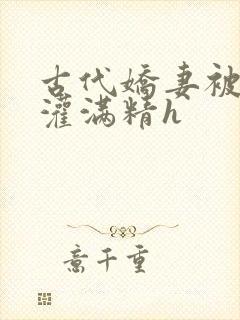 古代嬌妻被
灌满精h
意千重